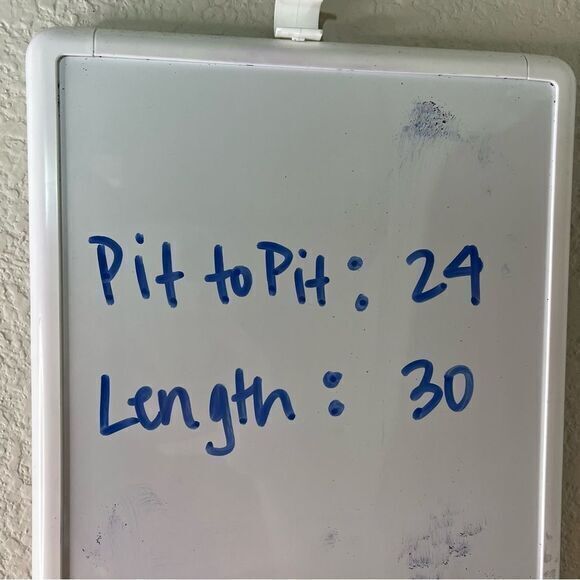 Pit to Pit: 24
Length: 30